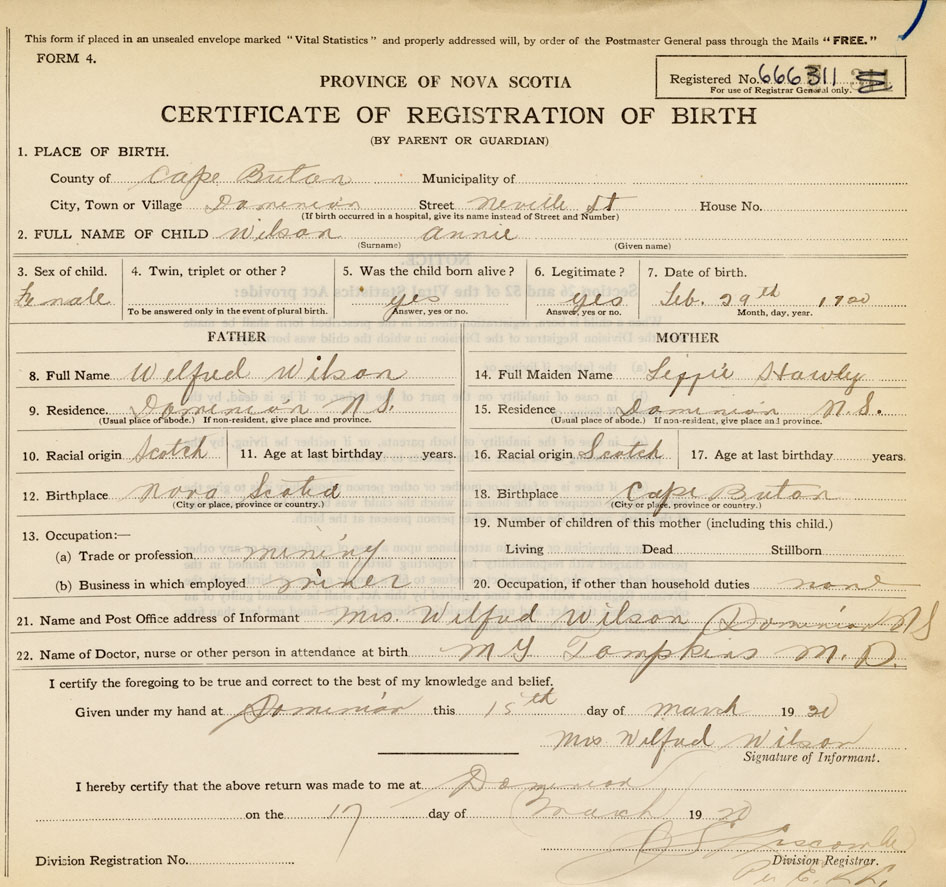 This form if placed in an unsealed envelope marked "Vital Statistics" and properly addressed will, by order of the Postmaster General pass through the Mails "FREE."
FORM 4.
Registered No. 666311
For use of Registrar General only.
PROVINCE OF NOVA SCOTIA
CERTIFICATE OF REGISTRATION OF BIRTH
(BY PARENT OR GUARDIAN)
1. PLACE OF BIRTH.
County of Cape Breton Municipality of
City, Town or Village Dominion Street Neville St House No.
(If birth occurred in a hospital, give its name instead of Street and Number)
2. FULL NAME OF CHILD Wilson Annie
(Surname) (Given name)
3. Sex of child. 4. Twin, triplet or other? 5. Was the child born alive? 6. Legitimate? 7. Date of birth.
Female yes yes Feb. 29th 1920
To be answered only in the event of plural birth. Answer, yes or no. Answer, yes or no. Month, day, year.
FATHER MOTHER
8. Full Name Wilfred Wilson 14. Full Maiden Name
9. Residence. Dominion N.S. 15. Residence Dominion N.S.
(Usual place of abode.) If non-resident, give place and province. (Usual place of abode.) If non-resident, give place and province.
10. Racial origin Scotch 11. Age at last birthday years. 16. Racial origin Scotch 17. Age at last birthday years.
12. Birthplace Nova Scotia 18. Birthplace Cape Breton
(City or place, province or country.) (City or place, province or country.)
13. Occupation:— 19. Number of children of this mother (including this child.)
(a) Trade or profession mining Living Dead Stillborn
(b) Business in which employed miner 20. Occupation, if other than household duties none
21. Name and Post Office address of Informant Mrs. Wilfred Wilson Dominion N S
22. Name of Doctor, nurse or other person in attendance at birth M G Tompkins M.D.
I certify the foregoing to be true and correct to the best of my knowledge and belief.
Given under my hand at Dominion this 15th day of March 1920
Mrs Wilfred Wilson
Signature of Informant.
I hereby certify that the above return was made to me at Dominion
on the 17 day of March 1920
Division Registration No. Division Registrar.